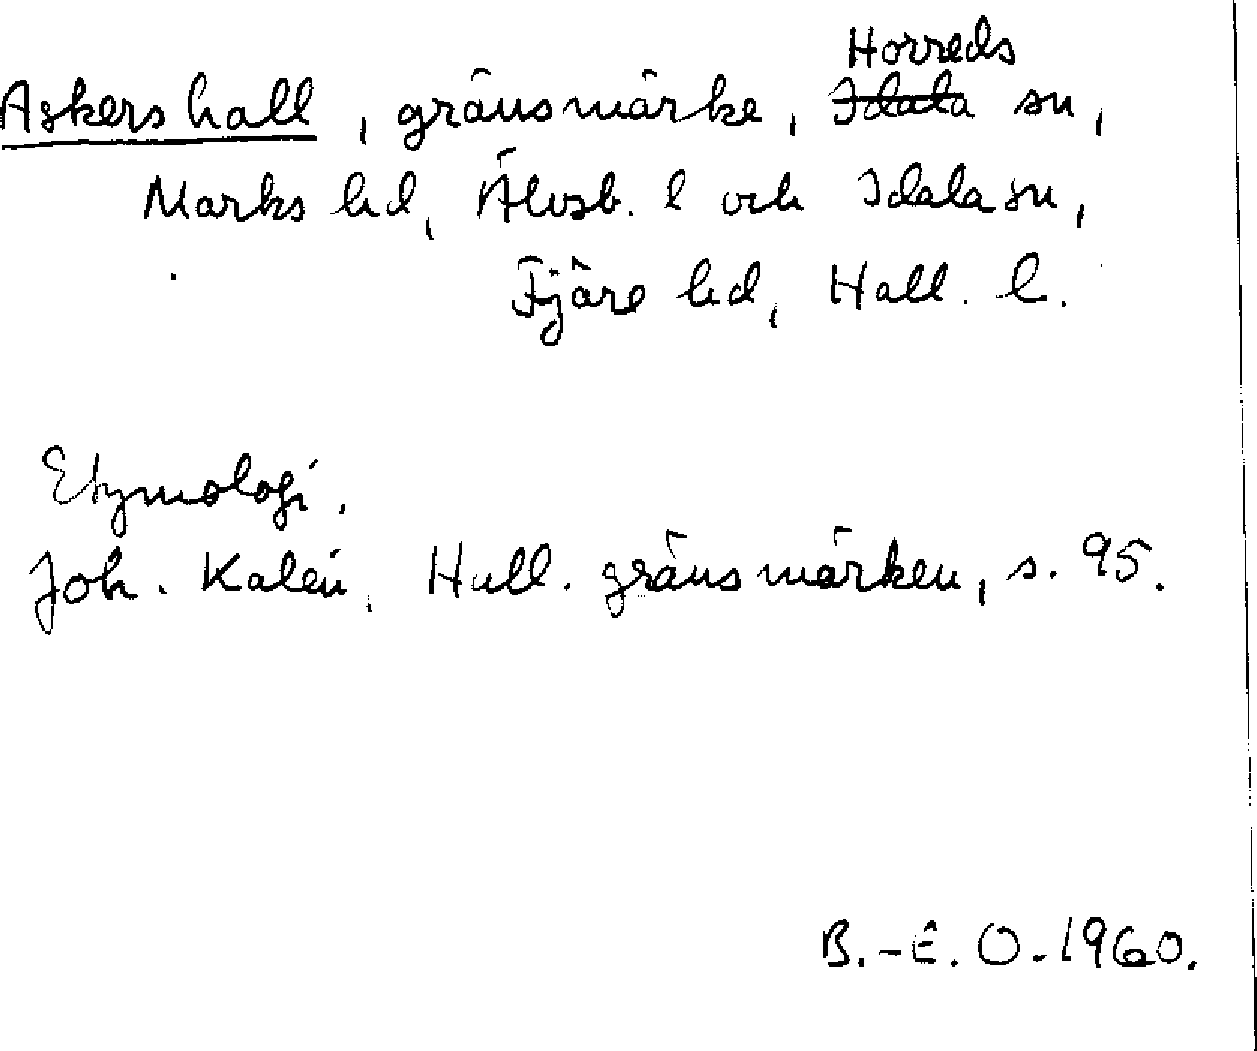 Horreds
Askers hall, gränsmärke, Idala sn,
Marks hd, Älvsb. l och Idala sn,
Fjäre hd, Hall. l.
Etymologi.
Joh. Kalén, Hall. gränsmärken, s. 95.
B.-E. O. 1960.